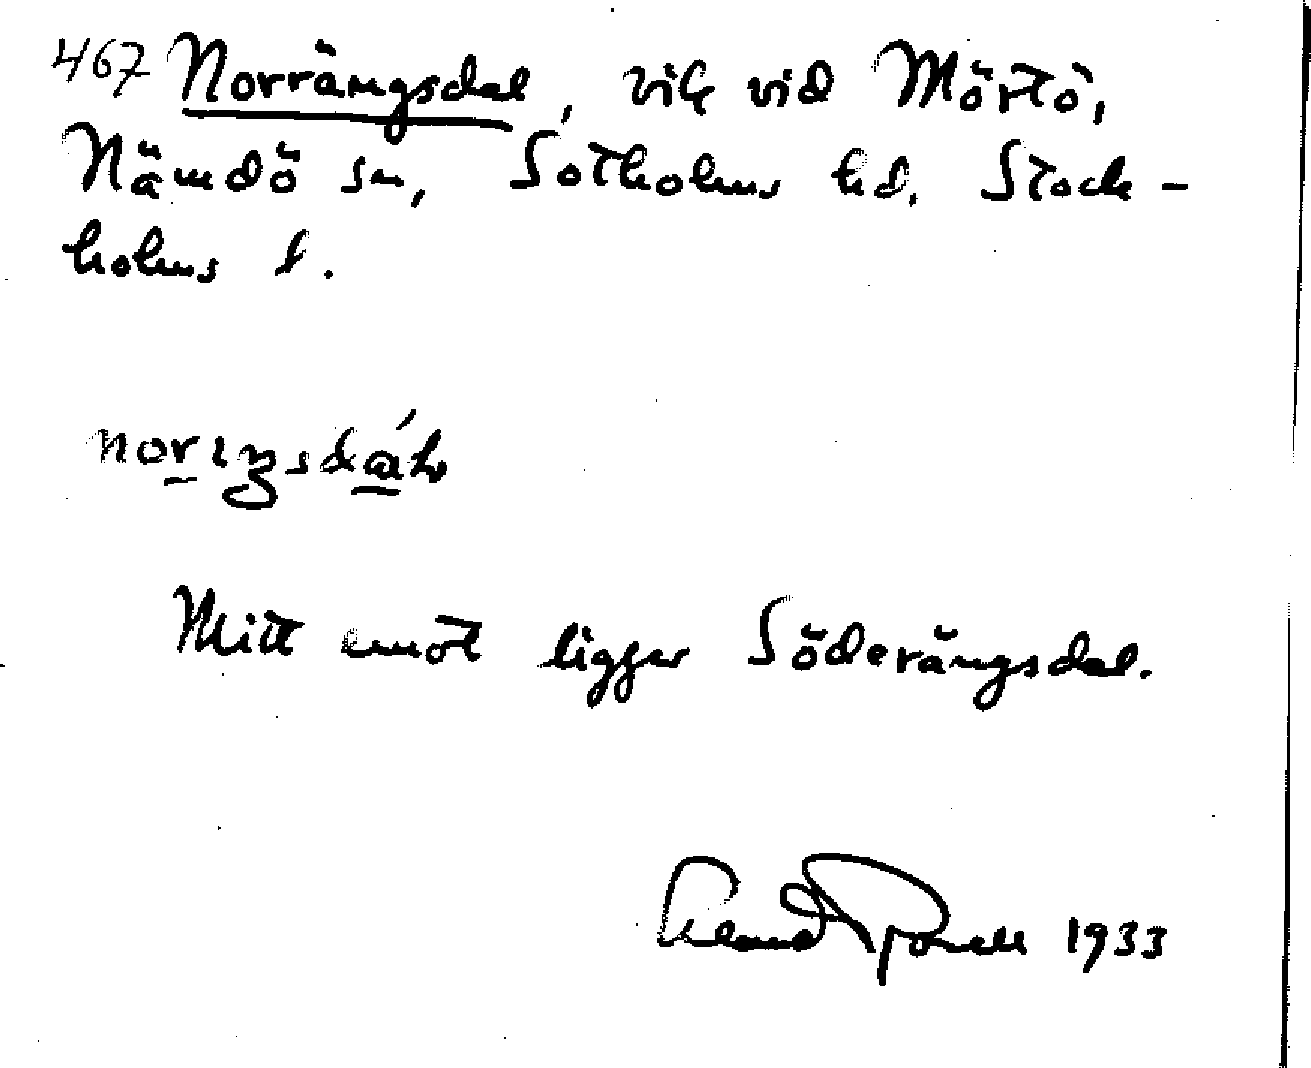 467 Norrängsdal, vik vid Mörtö,
Nämdö sn, Sotholms hd. Stock-
holms l.
Mitt emot ligger Söderängsdal.
1933